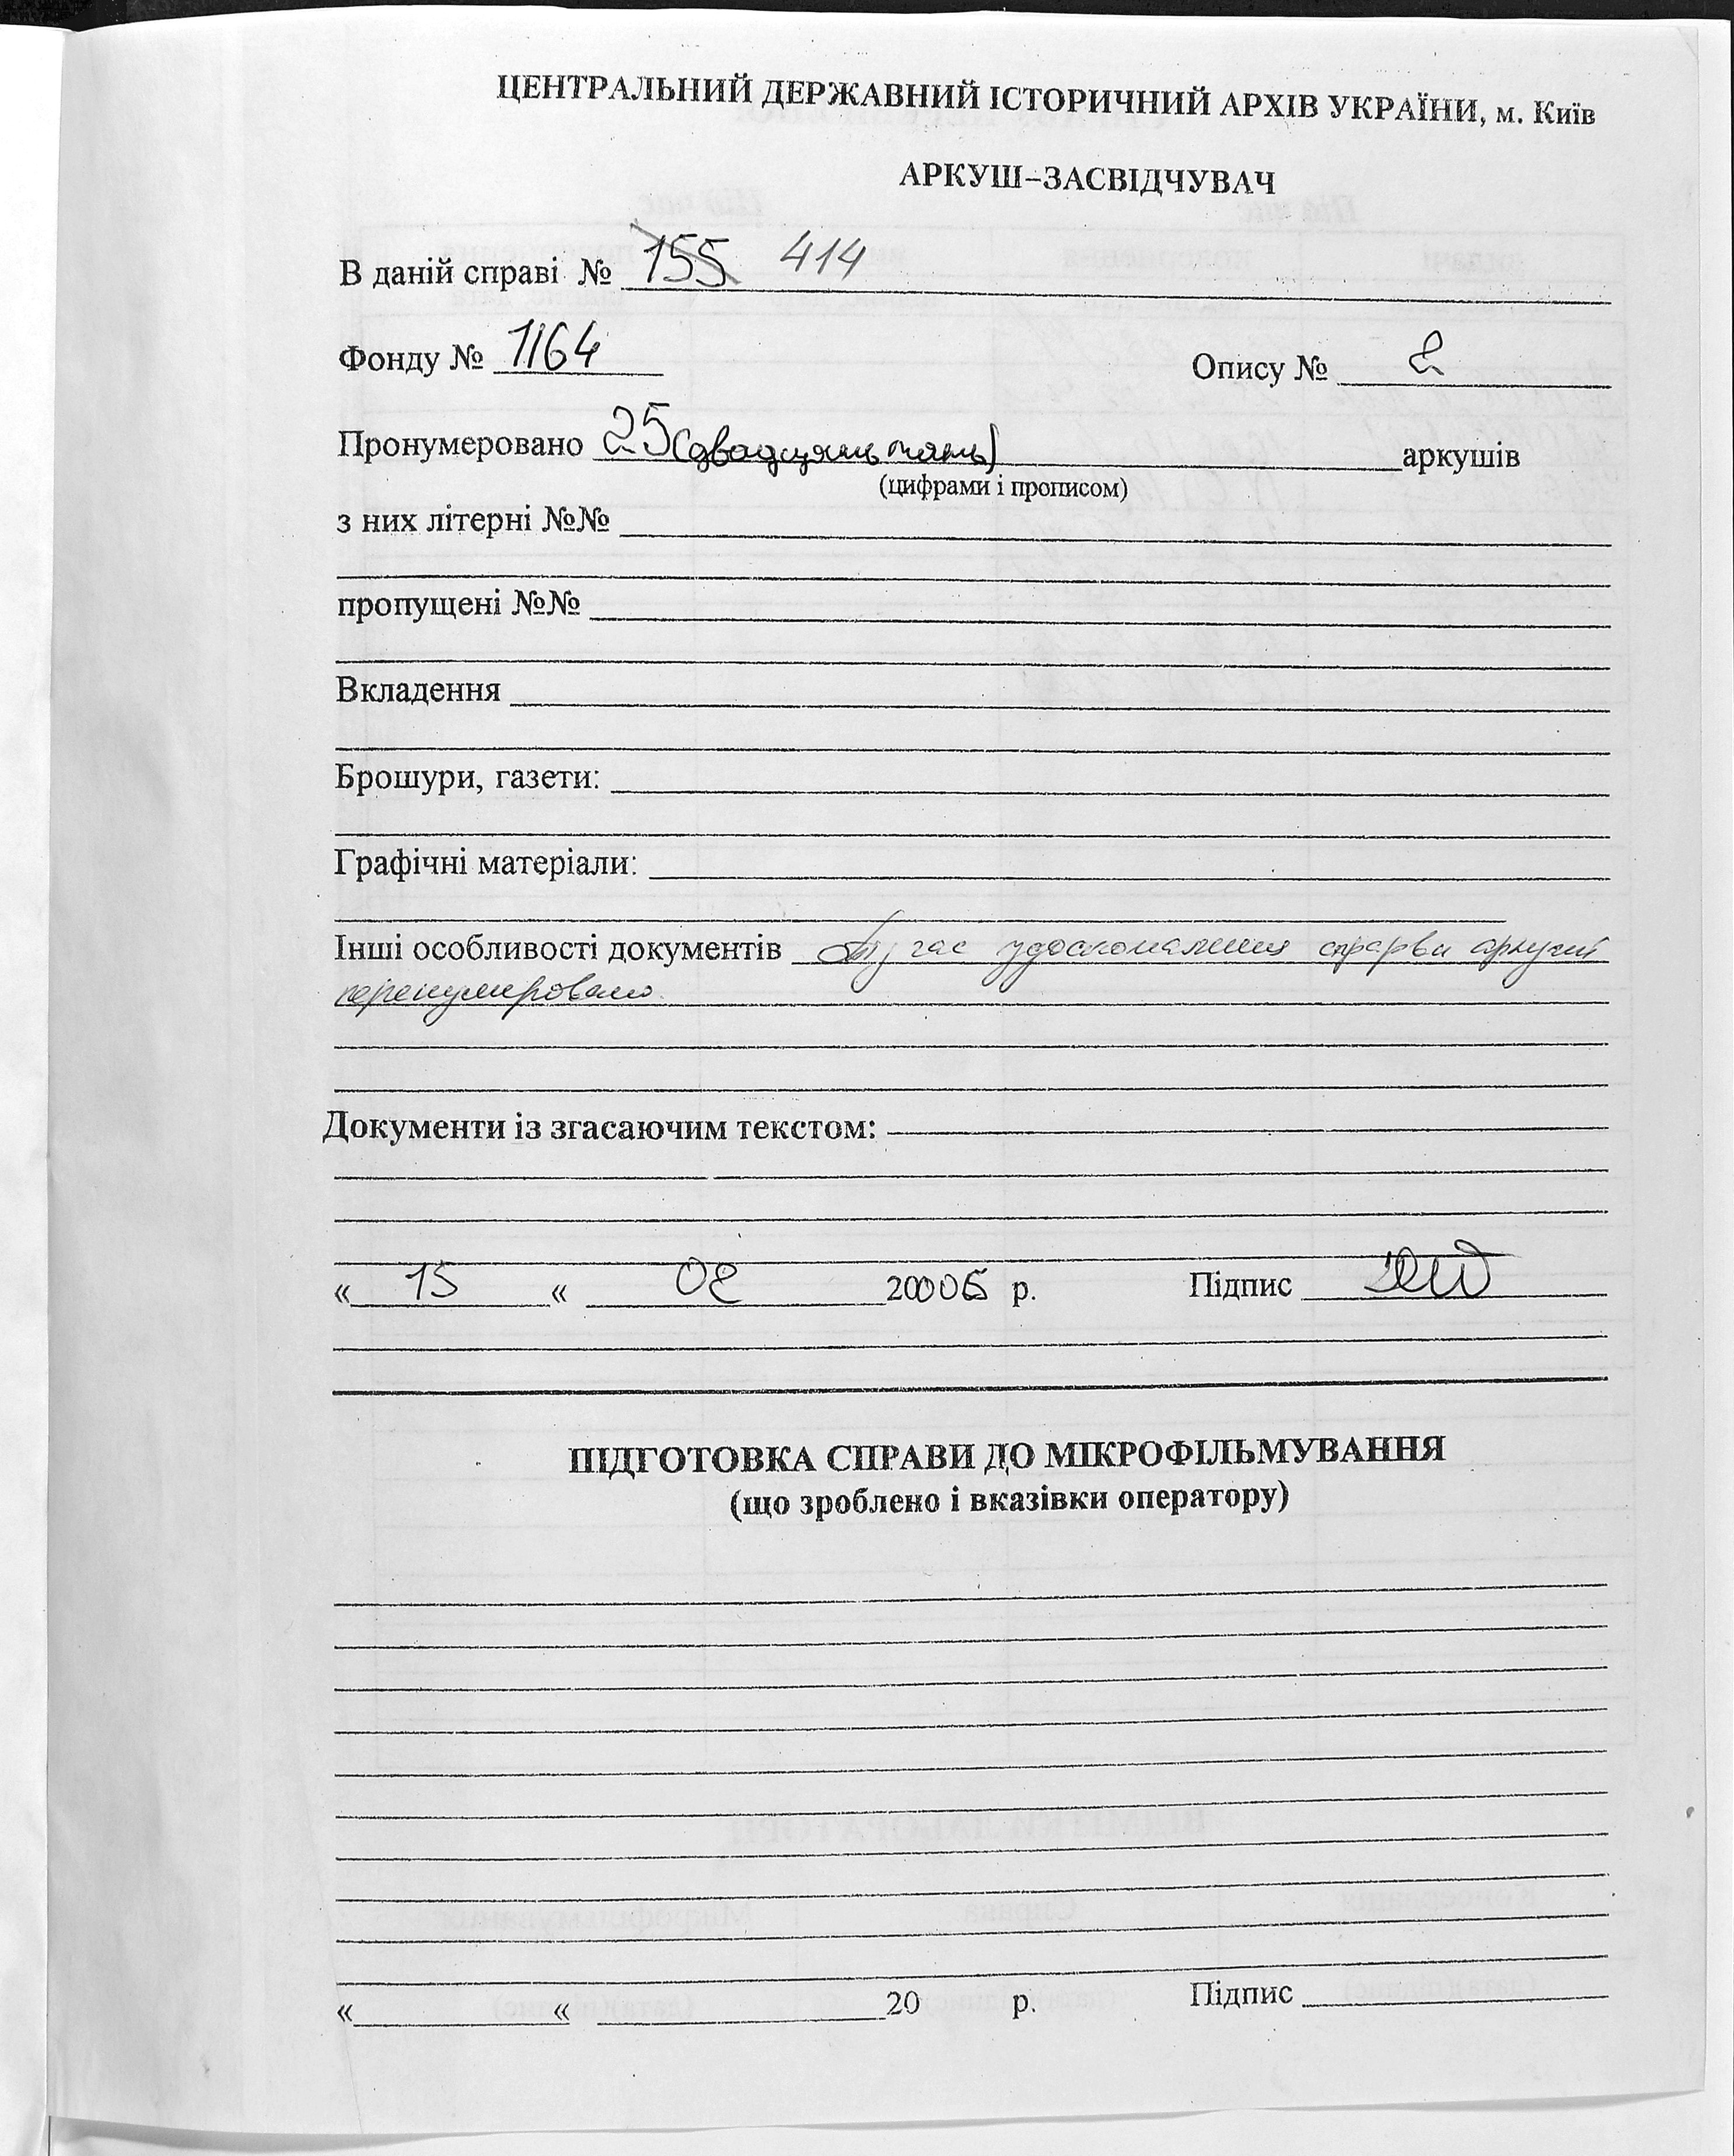 ЦЕНТРАЛЬНИЙ ДЕРЖАВНИЙ ІСТОРИЧНИЙ АРХІВ УКРАЇНИ, м. Київ
АРКУШ–ЗАСВІДЧУВАЧ
В даній справі № 155 414
Фонду № 1164 Опису № 2
Пронумеровано 25 (двадцять пять) аркушів
(цифрами і прописом)
з них літерні №№
пропущені №№
Вкладення
Брошури, газети:
Графічні матеріали:
Інші особливості документів Під час удосконалення справи аркуші
перенумеровано
Документи із згасаючим текстом:
« 15 « 02 20006 р. Підпис
ПІДГОТОВКА СПРАВИ ДО МІКРОФІЛЬМУВАННЯ
(що зроблено і вказівки оператору)
« « 20 р. Підпис